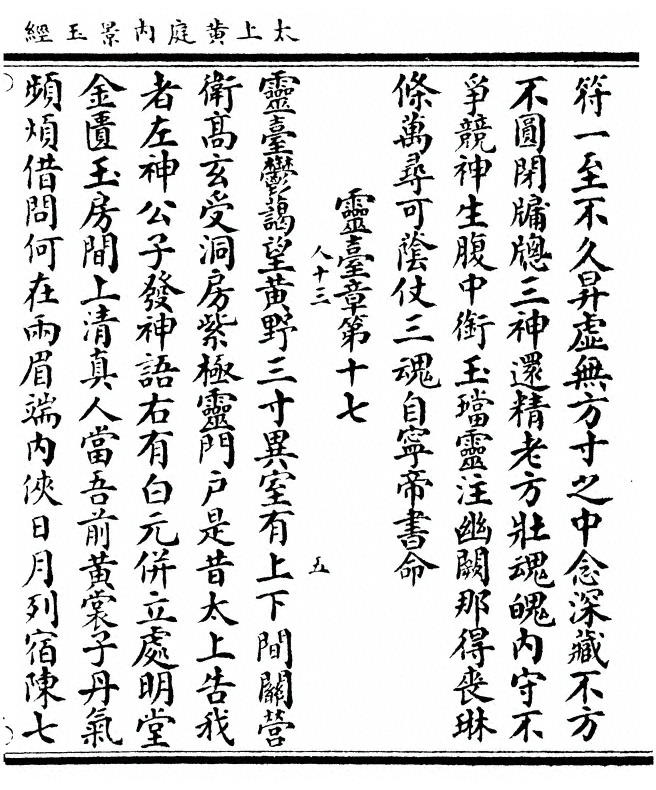 太上黄庭内景玉經
符一至不久昇虚無方寸之中念深藏不方
不圓閉牖牕三神還精老方壯魂魄内守不
爭競神生腹中銜玉璫靈注幽闕那得喪琳
條萬尋可蔭仗三魂自寧帝書命
靈臺章第十七
人十三
五
靈臺鬱藹望黄野三寸異室有上下間關營
衛髙玄受洞房紫極靈門户是昔太上告我
者左神公子發神語右有白元併立處明堂
金匱玉房間上清真人當吾前黄裳子丹氣
頻煩借問何在兩眉端内俠日月列宿陳七